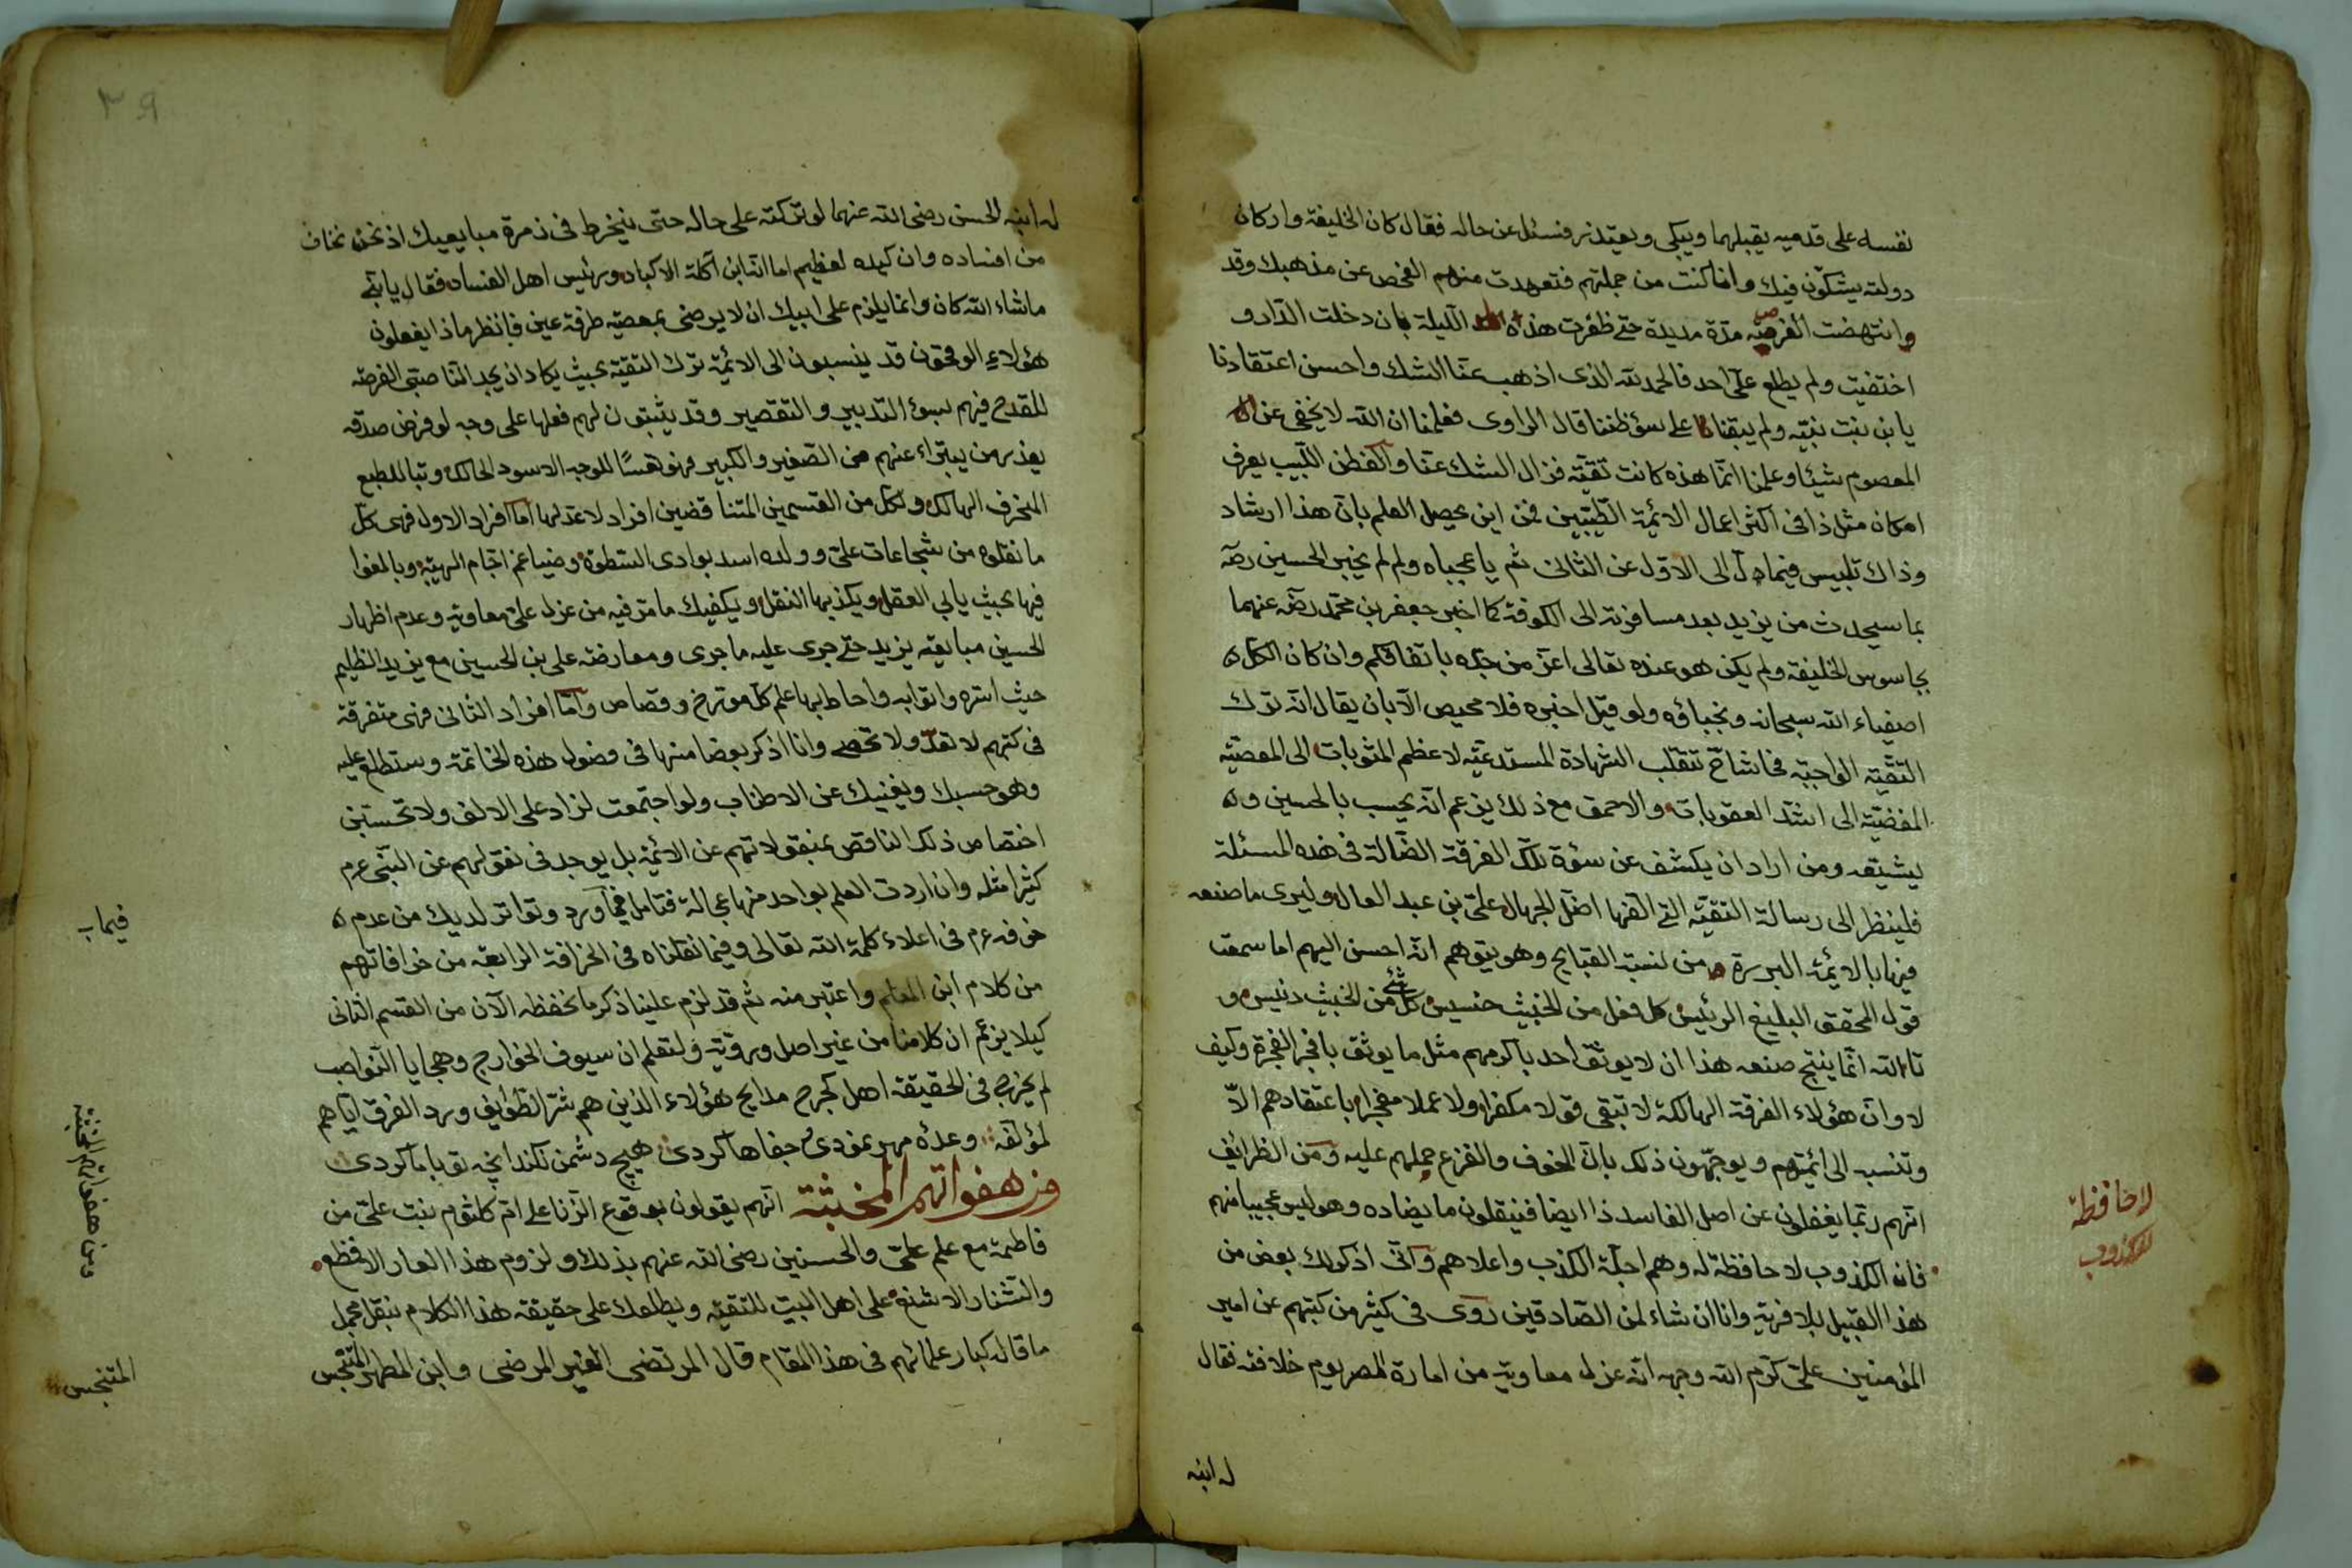 نفسه على قدميه يقبلهما ويبكى ويعتذر فسئل عن حاله فقال كان الخليفة واركان
دولته يشكّون فيك وانا كنت من جملتهم فتعهدت منهم الفحص عن مذهبك وقد
وانتهضت الفرصة مدّة مديدة حتى ظفرت هذه الليلة بان دخلت الدّار و
اختفيت ولم يطلع علىّ احد فالحمد لله الذى اذهب عنّا الشك واحسن اعتقادنا
يا بن بنت نبيّه ولم يبقنا على سؤ ظننا قال الراوى فعلمنا ان الله لا يخفى عن
المعصوم شيئا وعلمنا انّما هذه كانت تقيّة فزال الشك عنّا والفطن اللّبيب يعرف
امكان مثل ذا فى اكثر اعمال الائمّة الطّيّبين فمن اين يحصل العلم بانّ هذا ارشاد
وذاك تلبيس فيما دل الى الاوّل عن الثانى ثم يا عجباه ولم لم يخبر الحسين رضه
بما سيحدث من يزيد بعد مسافرته الى الكوفة كما اخبر جعفر بن محمّد رضه عنهما
بجاسوس الخليفة ولم يكن هو عنده تعالى اعزّ من جدّه باتفاقكم وان كان الكل
اصفياء الله سبحانه ونجباؤه ولو قيل اخبره فلا محيص الّا بان يقال انّه ترك
التقيّة الواجبة فحاشا ح تنقلب الشهادة المستدعية لاعظم المثوبات الى المعصية
المفضية الى اشدّ العقوبات والاحمق مع ذلك يزعم انّه يحسب بالحسين و
يشيعه ومن اراد ان يكشف عن سؤة تلك الفرقة الضّالة فى هذه المسئلة
فلينظر الى رسالة التقيّة التى الّفها اضلّ الجهال علىّ بن عبد العال وليرى ما صنعه
فيها بالائمّة البررة من نسبة القبايح وهو يتوهم انّه احسن اليهم اما سمعت
قول المحقق البليغ الرئيس كل فعل من الخبيث خسيس كل شئ من الخبيث دنيس و
تالله انّما ينتج صنعه هذا ان لا يوثق احد باكرمهم مثل ما يوثق بافجر الفجرة وكيف
لا وانّ هؤلاء الفرقة الهالكة لا تبقى قولا مكفرا ولا عملا مفجرا باعتقادهم الّا
وتنسبه الى ائمتهم ويوجّهون ذلك بانّ الخوف والفزع حملهم عليه ومن الظرائف
انّهم ربّما يغفلون عن اصل الفاسد ذا ايضا فينقلون ما يضاده وهو ليس عجيبا منهم
فانه الكذوب لا حافظة له وهم اجلّة الكذب واعلاهم وانى اذكر لك بعض من
هذا القبيل بلا فرية وانا ان شاء لمن الصّادقين روى فى كثير من كتبهم عن امير
المؤمنين علىّ كرّم الله وجهه انّه عزل معاوية من امارة المصر يوم خلافته فقال
له ابنه
لا حافظة
للكذوب
٣٩
له ابنه الحسن رضى الله عنهما لو تركته على حاله حتى ينخرط فى زمرة مبايعيك اذ نحن نخاف
من افساده وان كيده لعظيم اما انّه ابن آكلة الاكباد ورئيس اهل الفساد فقال يا بنىّ
ما شاء الله كان وانما يلزم على ابيك ان لا يرضى بمعصية طرفة عين فانظر ماذا يفعلون
هؤلاء الوقحون قد ينسبون الى الائمّة ترك التقيّة بحيث يكاد ان يجد النّاصبىّ الفرصة
للقدح فيهم بسوء التدبير والتقصير وقد يثبتون لهم فعلها على وجه لو فرض صدقه
يعذر من يتبراء عنهم من الصّغير والكبير فهو تعسًا للوجه الاسود الحالك وتبا للطبع
المنحرف الهالك ولكل من القسمين المتناقضين افراد لا عد لها امّا افراد الاول فهى كلّ
ما نقلوه من شجاعات علىّ وولده اسد بوادى السّطوة وضياغم اجام الهيبة وبالغوا
فيها بحيث يابى العقل ويكذبها النقل ويكفيك ما مرّ فيه من عزل علىّ معاوية وعدم اظهار
الحسين مبايعة يزيد حتى جرى عليه ما جرى ومعارضة على بن الحسين مع يزيد الظليم
حيث اسره واترابه واحاط بها علم كلّ مورخ وقصاص وامّا افراد الثانى فهى متفرقة
فى كتبهم لا تعدّ ولا تحصى وانا اذكر بعضا منها فى فصول هذه الخاتمة وستطلع عليه
وهو حسبك ويغنيك عن الاطناب ولو اجتمعت لزاد على الالف ولا تحسبن
اختصاص ذلك الناقص بمنقولاتهم عن الائمّة بل يوجد فى نقولهم عن النبىّ عم
كثيرا مثله وان اردت العلم بواحد منها عجالة فتامل فيما ورد وتواتر لديك من عدم
خوفه عم فى اعلاء كلمة الله تعالى وفيما نقلناه فى الخرافة الرابعة من خرافاتهم
من كلام ابن المعلم واعتبر منه ثم قد لزم علينا ذكر ما نحفظه الآن من القسم الثانى
كيلا يزعم ان كلامنا من غير اصل وروية ولتعلم ان سيوف الخوارج وهجايا النّواصب
لم يجرح فى الحقيقة اهل كجرح مدايح هؤلاء الذين هم شرّ الطوايف ورد الفرق اياهم
لمؤلفه وعده مهر نمودى جفاها كردى هيچ دشمن نكند انچه تو با ما كردى
ومن هفواتهم المخبثة انّهم يقولون بوقوع الزّنا على امّ كلثوم بنت علىّ من
فاطمة مع علم علىّ والحسنين رضى الله عنهم بذلك ولزوم هذا العار الافظع
والشّنار الاشنع على اهل البيت للتقيّة ويطلعك على حقيقة هذا الكلام نقل مجمل
ما قاله كبار علمائهم فى هذا المقام قال المرتضى الغير المرضى وابن المطهر المتنجس
فيما
ومن هفواتهم المخبثة
المتنجس